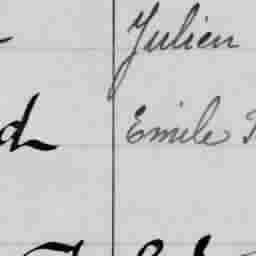 Julien
d Emile